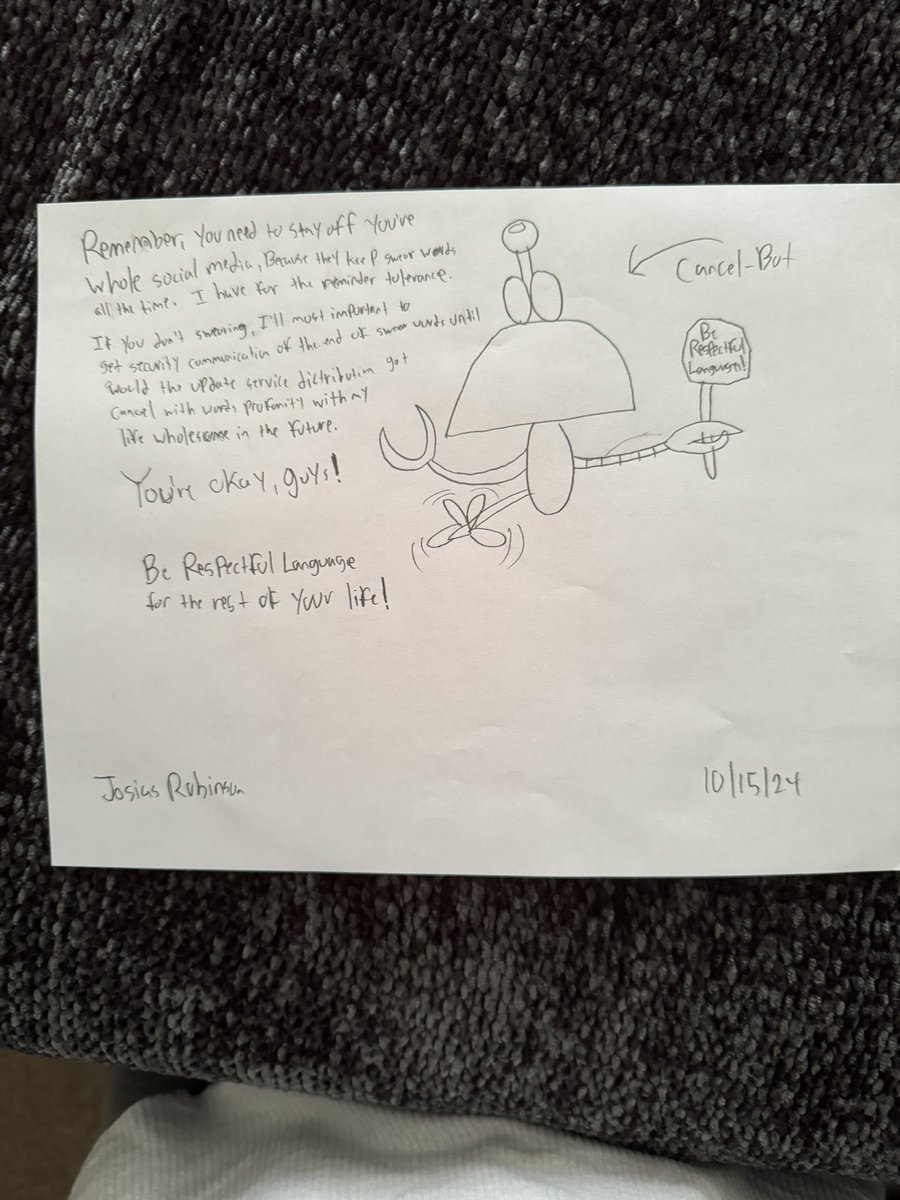 Remember, You need to stay off You've
whole social media, Because they keep swear words
all the time. I have for the reminder tolerance.
If you don't swearing, I'll most important to
get security communication of the end of swear words until
would the update service dictribution got
Cancel with words profonity with my
life wholesome in the future.
You're okay, guys!
Be Respectful Language
for the rest of your life!
Cancel-Bot
Be
Respectful
Languages!
Josias Robinson
10/15/24